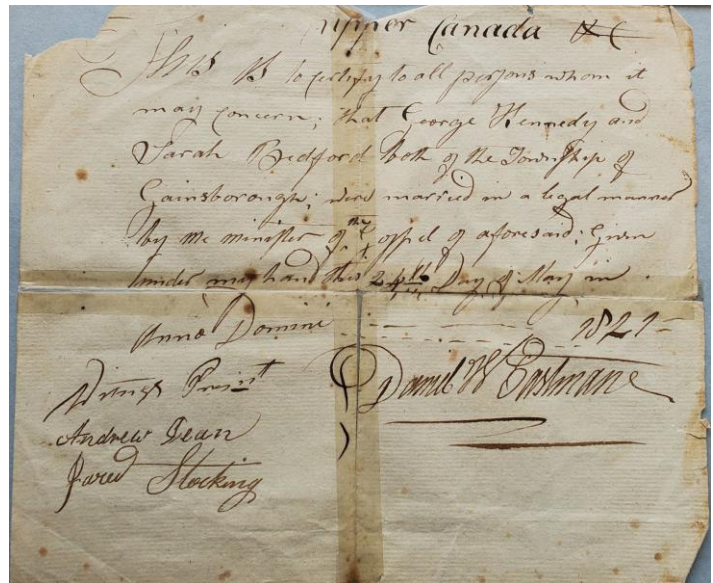 Upper Canada &c
This is to certify to all persons whom it
may concern; that George Kennedy and
Sarah Bedford both of the Township of
Gainsborough; were married in a legal manner
by me minister of the Gospel of aforesaid; Given
under my hand this 24th Day of May in
Anno Domini 1821
Daniel W Eastmane
Witness Present
Andrew Dean
Jared Stocking